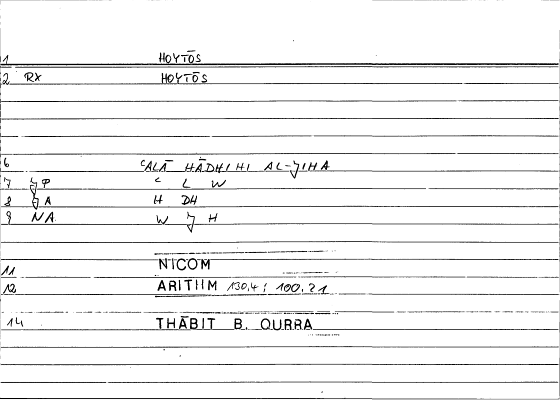 1 HOYTŌS
2 RX HOYTŌS
6 ʿALĀ HĀDHIHI AL-ǦIHA
7 ǦP ʿ L W
8 ǦA H DH
9 NA W Ǧ H
11 NICOM
12 ARITIIM 130.4 : 100.21
14 THĀBIT B. QURRA